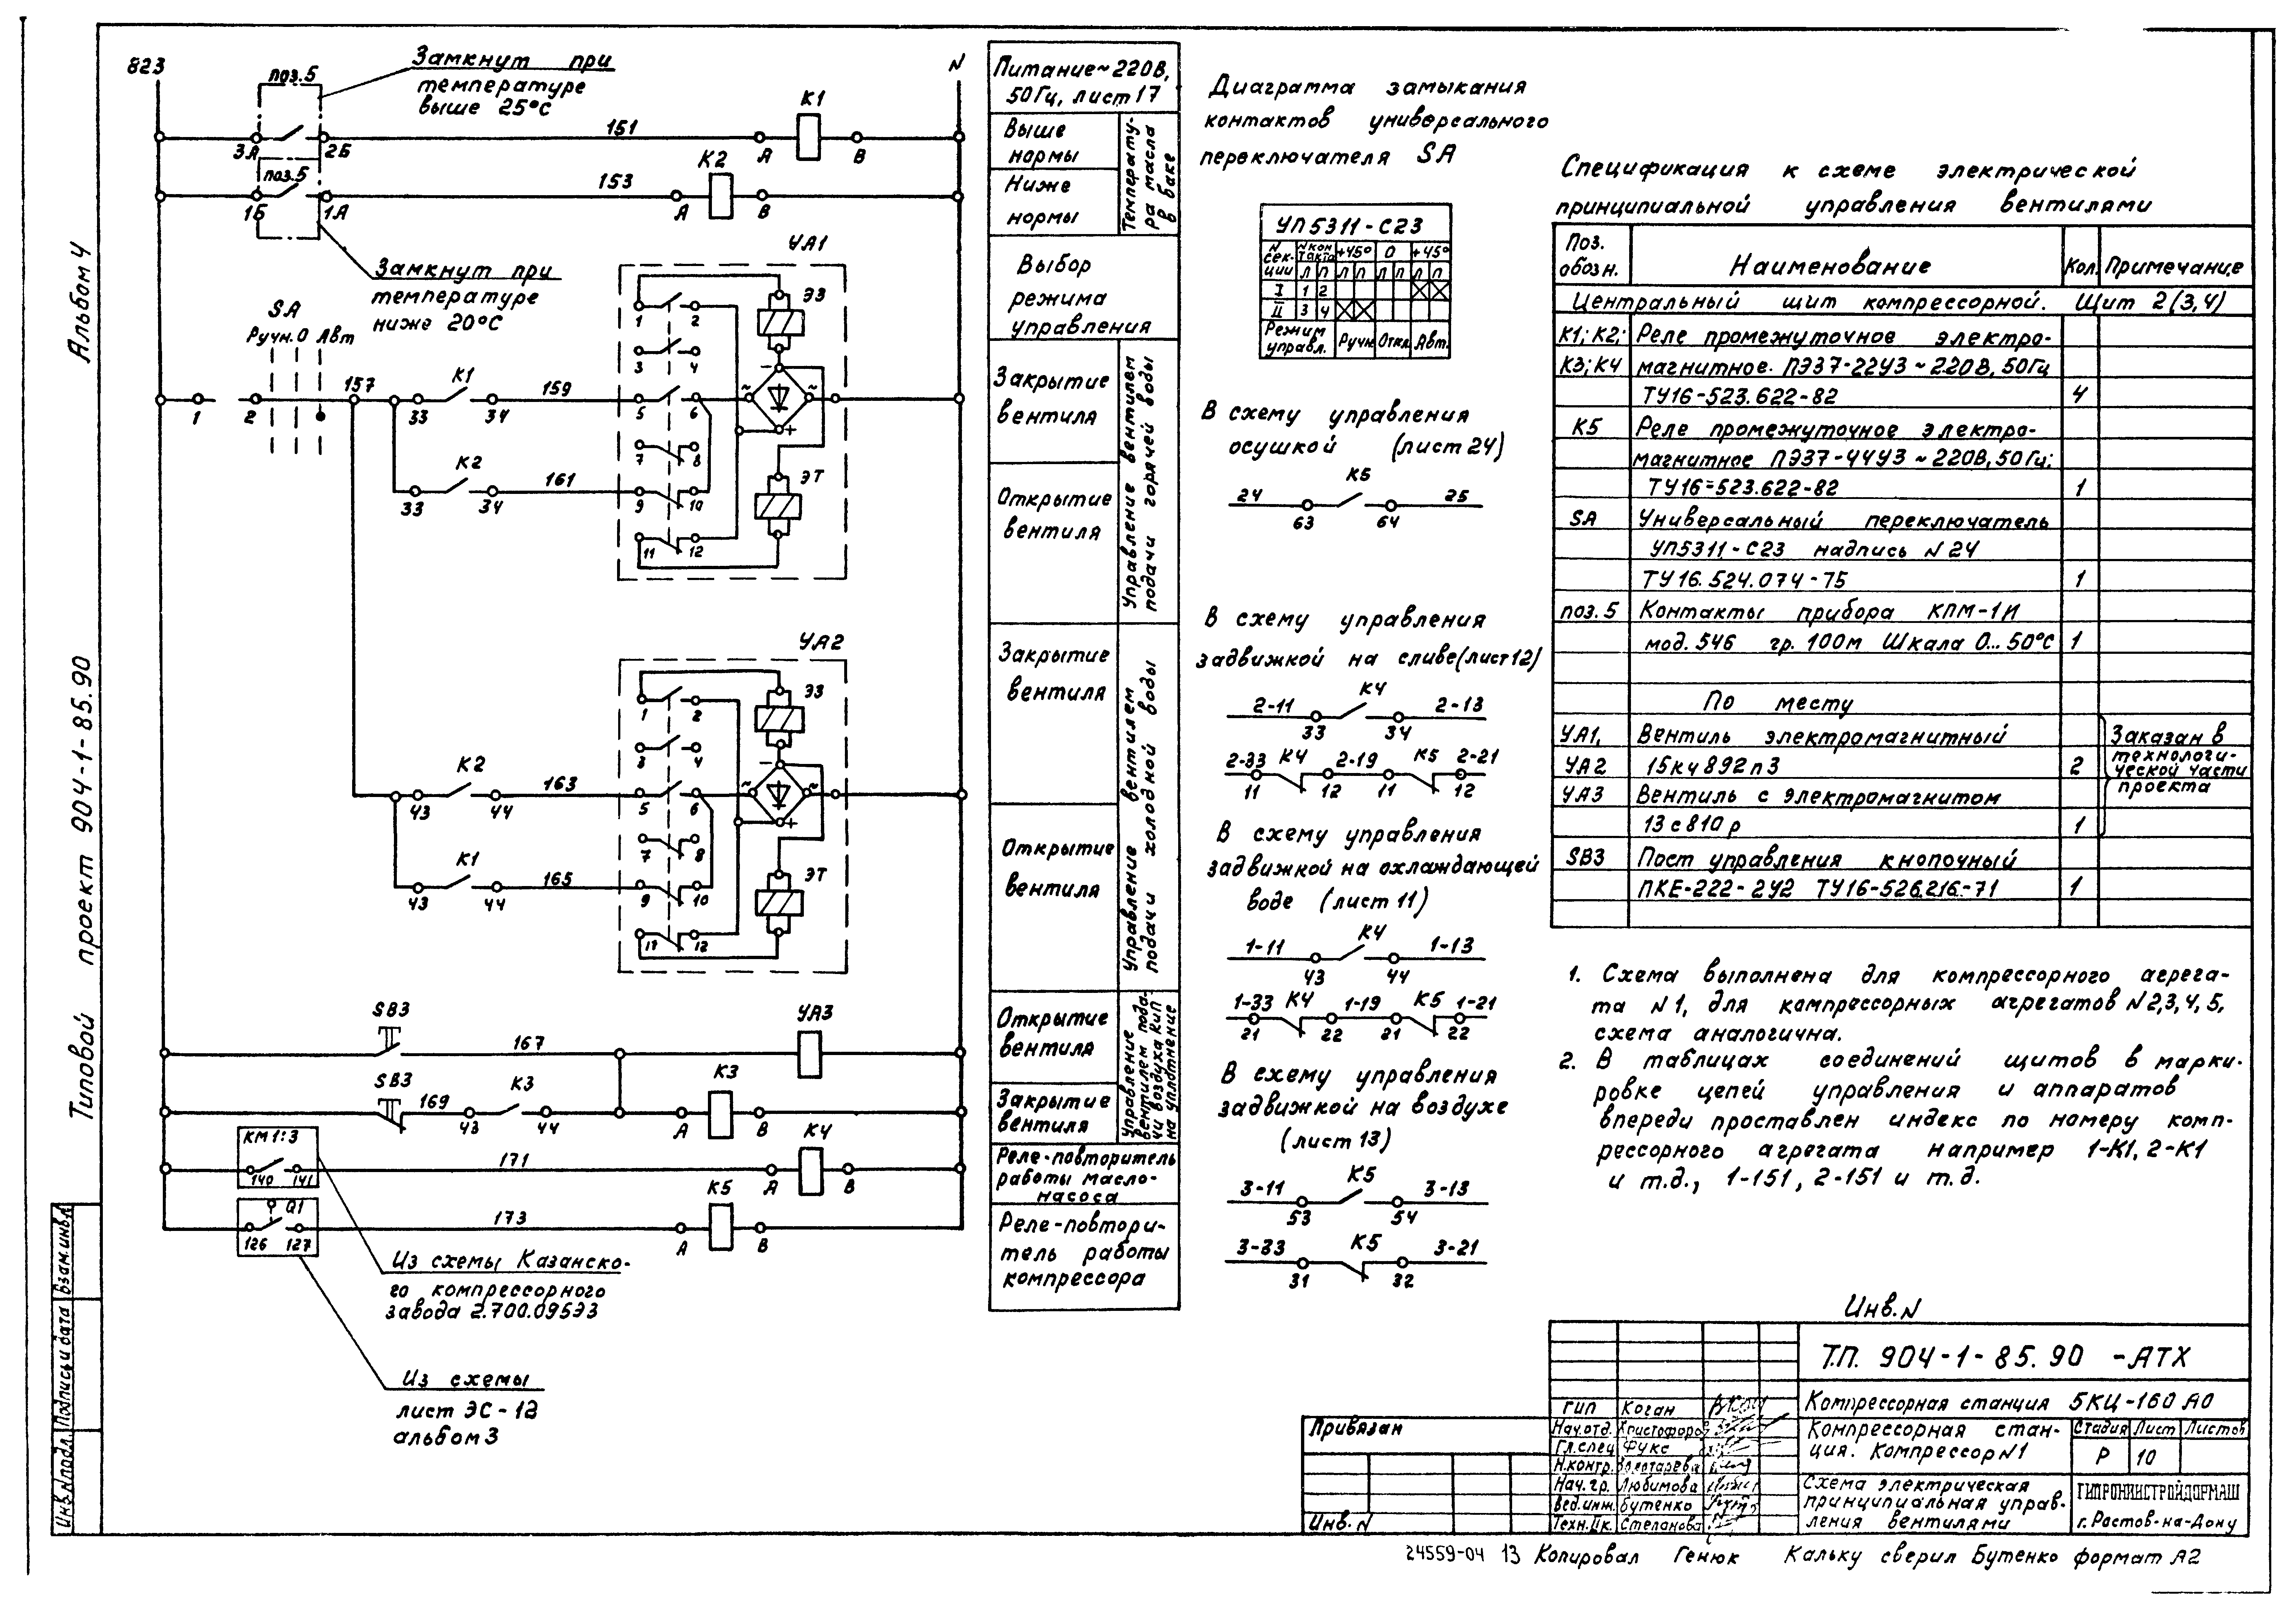 Альбом 4
Типовой проект 904-1-85.90
Взам.инв.N
Подпись и дата
Инв.N подл.
823
N
поз.5
Замкнут при
температуре
выше 25°С
3А
2Б
151
А
К1
В
поз.5
1Б
1А
153
А
К2
В
Замкнут при
температуре
ниже 20°С
SA
Ручн. О Авт
1
2
157
33
К1
34
159
33
К2
34
161
УА1
1
2
3
4
5
6
7
8
9
10
11
12
ЭЗ
~
-
~
+
ЭТ
УА2
1
2
3
4
5
6
7
8
9
10
11
12
ЭЗ
~
-
~
+
ЭТ
43
К2
44
163
43
К1
44
165
SB3
167
УА3
SB3
169
43
К3
44
А
К3
В
КМ1:3
140
141
171
А
К4
В
Q1
126
127
173
А
К5
В
Из схемы Казанско-
го компрессорного
завода 2.700.095Э3
Из схемы
лист ЭС-12
альбом 3
Питание ~ 220В,
50Гц, лист 17
Выше
нормы
Ниже
нормы
Температу-
ра масла
в баке
Выбор
режима
управления
Закрытие
вентиля
Открытие
вентиля
Управление вентилем
подачи горячей воды
Закрытие
вентиля
Открытие
вентиля
Управление вентилем
подачи холодной воды
Открытие
вентиля
Закрытие
вентиля
Управление
вентилем пода-
чи воздуха КиП
на уплотнение
Реле-повторитель
работы масло-
насоса
Реле-повтори-
тель работы
компрессора
Диаграмма замыкания
контактов универсального
переключателя SA
УП5311-С23
N сек-ции
N контакта
+45° 0 +45°
Л П Л П Л П Л П
I 1 2
II 3 4
Режим управл.
Ручн Откл. Авт.
В схему управления
осушкой (лист 24)
24
К5
25
63
64
В схему управления
задвижкой на сливе(лист 12)
2-11
К4
2-13
33
34
2-33 К4 2-19 К5 2-21
11 12 11 12
В схему управления
задвижкой на охлаждающей
воде (лист 11)
1-11
К4
1-13
43
44
1-33 К4 1-19 К5 1-21
21 22 21 22
В схему управления
задвижкой на воздухе
(лист 13)
3-11
К5
3-13
53
54
3-33
К5
3-21
31
32
Спецификация к схеме электрической
принципиальной управления вентилями
Поз. обозн. Наименование Кол. Примечание
Центральный щит компрессорной. Щит 2(3,4)
К1; К2; Реле промежуточное электро-
К3; К4 магнитное. ПЭ37-22У3 ~ 220В, 50Гц
ТУ16-523.622-82 4
К5 Реле промежуточное электро-
магнитное ПЭ37-44У3 ~ 220В, 50Гц;
ТУ16=523.622-82 1
SA Универсальный переключатель
УП5311-С23 надпись N 24
ТУ16.524.074-75 1
поз. 5 Контакты прибора КПМ-1И
мод. 546 гр. 100м Шкала 0...50°С 1
По месту
УА1, Вентиль электромагнитный
УА2 15кч892п3 2
УА3 Вентиль с электромагнитом
13с810р 1
Заказан в
технологи-
ческой части
проекта
SB3 Пост управления кнопочный
ПКЕ-222-2У2 ТУ16-526.216.-71 1
1. Схема выполнена для компрессорного агрега-
та N1, для компрессорных агрегатов N2,3,4,5,
схема аналогична.
2. В таблицах соединений щитов в марки-
ровке цепей управления и аппаратов
впереди проставлен индекс по номеру комп-
рессорного агрегата например 1-К1, 2-К1
и т.д., 1-151, 2-151 и т.д.
Инв.N
Т.П. 904-1-85.90 -АТХ
Компрессорная станция 5КЦ-160 АО
Компрессорная стан-
ция. Компрессор N1
Стадия Лист Листов
Р 10
Схема электрическая
принципиальная управ-
ления вентилями
ГИПРОНИИСТРОЙДОРМАШ
г. Ростов-на-Дону
ГИП Коган
Нач.отд. Христофоров
Гл.спец Фукс
Н.контр.
Нач.гр. Любимова
Вед.инж. Бутенко
Техн.IIк. Степанова
Привязан
Инв.N
24559-04 13 Копировал Генюк Кальку сверил Бутенко формат А2